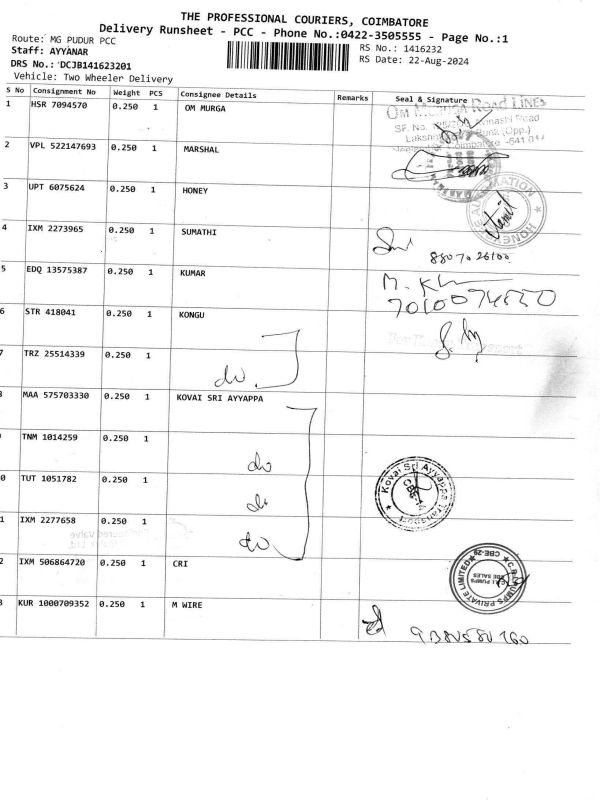 THE PROFESSIONAL COURIERS, COIMBATORE
Delivery Runsheet - PCC - Phone No.:0422-3505555 - Page No.:1
Route: MG PUDUR PCC
RS No.: 1416232
Staff: AYYANAR
RS Date: 22-Aug-2024
DRS No.: DCJB141623201
Vehicle: Two Wheeler Delivery
S No Consignment No Weight PCS Consignee Details Remarks Seal & Signature
1 HSR 7094570 0.250 1 OM MURGA
OM MURUGA ROAD LINES
2 VPL 522147693 0.250 1 MARSHAL
3 UPT 6075624 0.250 1 HONEY
4 IXM 2273965 0.250 1 SUMATHI
88070 26100
5 EDQ 13575387 0.250 1 KUMAR
6 STR 418041 0.250 1 KONGU
7 TRZ 25514339 0.250 1
do
MAA 575703330 0.250 1 KOVAI SRI AYYAPPA
TNM 1014259 0.250 1
do
0 TUT 1051782 0.250 1
do
Kovai Sri Ayyappa Transport
CBE
1 IXM 2277658 0.250 1
do
2 IXM 506864720 0.250 1 CRI
C.R.I. PUMPS PRIVATE LIMITED
CBE-29
KUR 1000709352 0.250 1 M WIRE